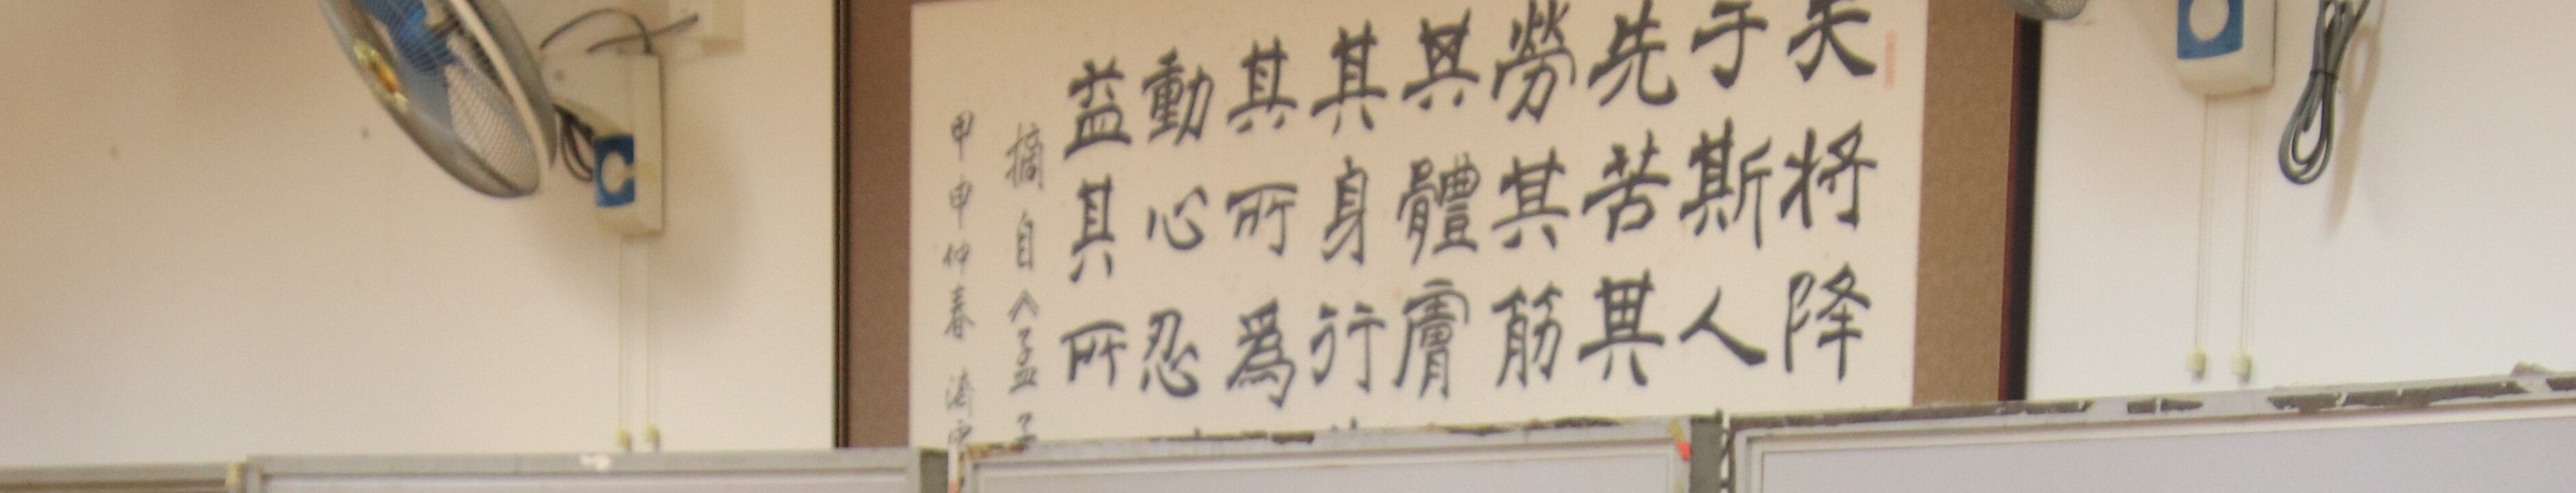 天将降
于斯人
先苦其
勞其筋
其體膚
其身行
其所爲
動心忍
益其所
摘自《孟子
甲申仲春